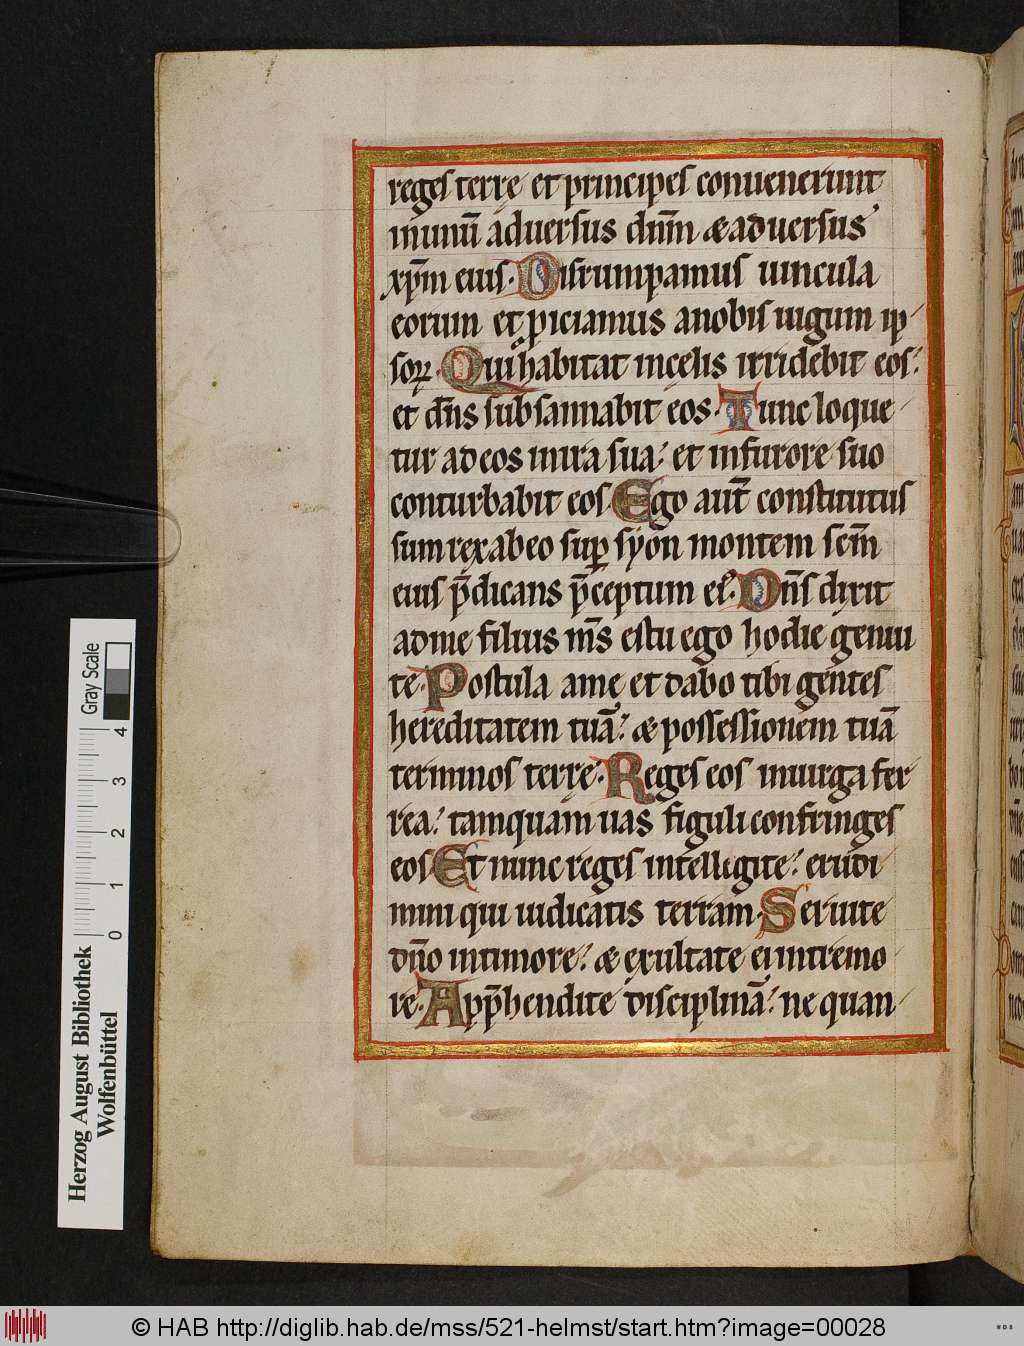 reges terrę et principes conuenerunt
inunū aduersus dnm̄ & aduersus
xpm̄ eius. Disrumpamus uincula
eorum et piciamus anobis iugum ip
soꝝ. Qui habitat incelis irridebit eos:
et dn̄s subsannabit eos. Tunc loque
tur ad eos inira sua: et infurore suo
conturbabit eos Ego aut̄ constitutus
sum rex abeo sup syon montem scm̄
eius p̄dicans p̄ceptum ei'. Dn̄s dixit
adme filius ms̄ es tu ego hodie genui
te. Postula ame et dabo tibi gentes
hereditatem tuā: & possessionem tuā
terminos terrę. Reges eos inuirga fer
rea: tamquam uas figuli confringes
eos Et nunc reges intelligite: erudi
mini qui iudicatis terram. Seruite
dn̄o intimore: & exultate ei intremo
re. App̄hendite disciplinā: ne quan
Gray Scale
4
3
2
1
0
Herzog August Bibliothek
Wolfenbüttel
© HAB http://diglib.hab.de/mss/521-helmst/start.htm?image=00028